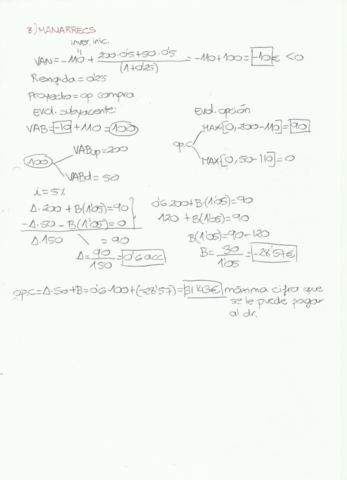 8) MANARRECS
inver. inic.
VAN = -110 + 200·0'5 + 50·0'5 / (1+0'25) = -110 + 100 = -10€ < 0
Rexigida = 0'25
Proyecto = op compra
Evol. subyacente: Evol. opción
VAB = -10 + 110 = 100
MAX[0, 200-110] = 90
op.c
MAX[0, 50-110] = 0
VABup = 200
100
VABd = 50
i = 5%
Δ·200 + B(1'05) = 90
-Δ·50 - B(1'05) = 0
Δ150 \ = 90
Δ = 90/150 = 0'6 acc
0'6·200 + B(1'05) = 90
120 + B(1'05) = 90
B(1'05) = 90-120
B = 30/1'05 = -28'57€
op.C = Δ·S0 + B = 0'6·100 + (-28'57) = 31'43€ máxima cifra que
se le puede pagar
al dr.